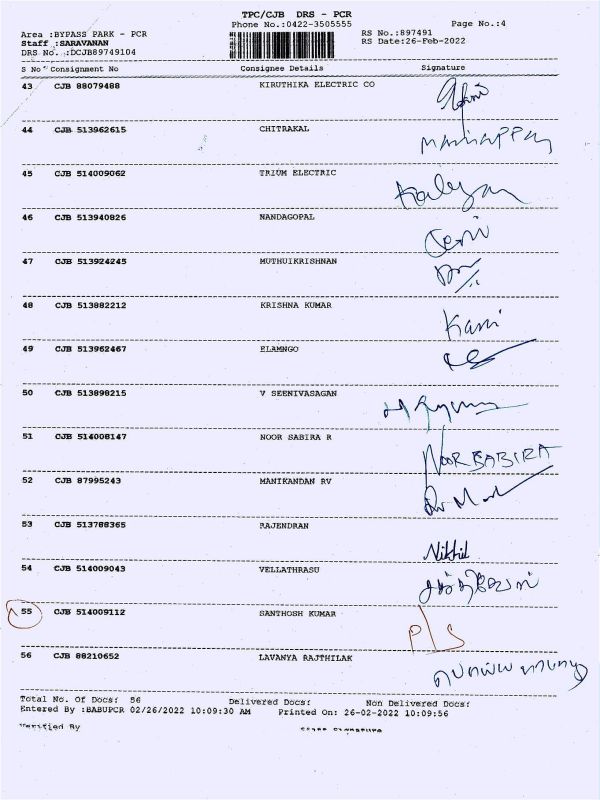 TPC/CJB DRS - PCR
Phone No.:0422-3505555
Page No.:4
Area :BYPASS PARK - PCR
RS No.:897491
Staff :SARAVANAN
RS Date:26-Feb-2022
DRS No. :DCJB89749104
S No Consignment No Consignee Details Signature
43 CJB 88079488 KIRUTHIKA ELECTRIC CO
44 CJB 513962615 CHITRAKAL
45 CJB 514009062 TRIUM ELECTRIC
46 CJB 513940826 NANDAGOPAL
47 CJB 513924245 MUTHUIKRISHNAN
48 CJB 513882212 KRISHNA KUMAR
Kani
49 CJB 513962467 ELAMNGO
50 CJB 513898215 V SEENIVASAGAN
51 CJB 514008147 NOOR SABIRA R
NOOR SABIRA
52 CJB 87995243 MANIKANDAN RV
53 CJB 513788365 RAJENDRAN
Nikhil
54 CJB 514009043 VELLATHRASU
55 CJB 514009112 SANTHOSH KUMAR
P/S
56 CJB 88210652 LAVANYA RAJTHILAK
Total No. Of Docs: 56 Delivered Docs: Non Delivered Docs:
Entered By :BABUPCR 02/26/2022 10:09:30 AM Printed On: 26-02-2022 10:09:56
Verified By